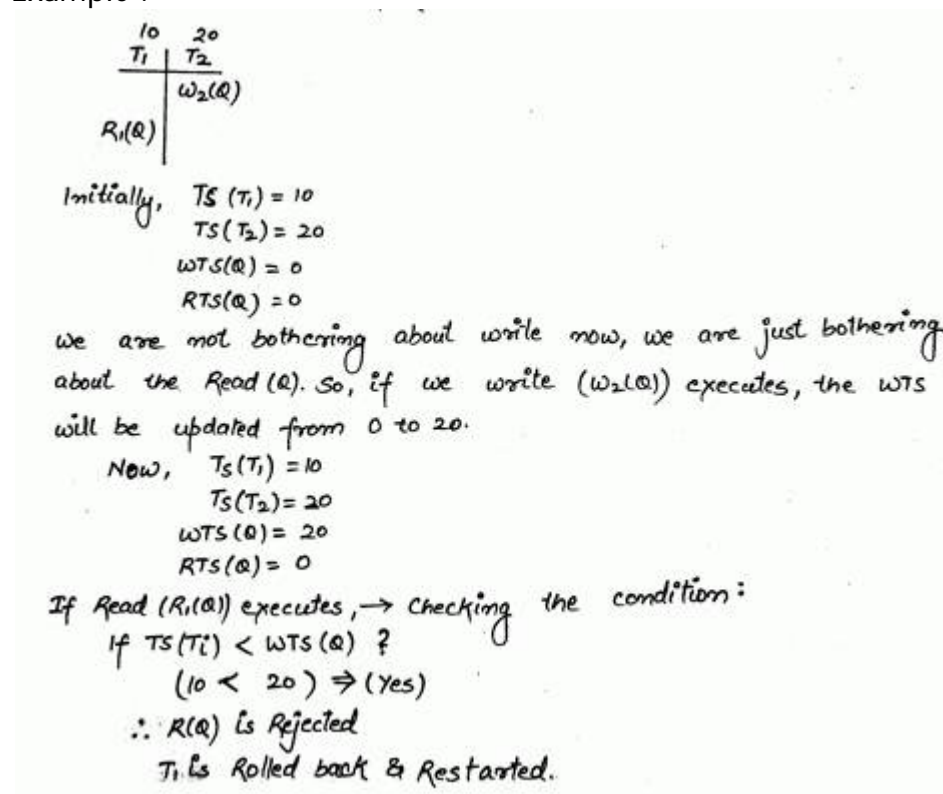 10 20
T1 T2
W2(Q)
R1(Q)
Initially, TS (T1) = 10
TS(T2) = 20
WTS(Q) = 0
RTS(Q) = 0
we are not bothering about write now, we are just bothering
about the Read (Q). So, if we write (W2(Q)) executes, the WTS
will be updated from 0 to 20.
Now, TS(T1) = 10
TS(T2) = 20
WTS(Q) = 20
RTS(Q) = 0
If Read (R1(Q)) executes, → Checking the condition:
If TS(Ti) < WTS(Q) ?
(10 < 20) ⇒ (Yes)
∴ R(Q) is Rejected
T1 is Rolled back & Restarted.